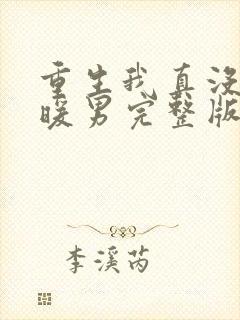 重生我真没
暖男完整版
李溪芮